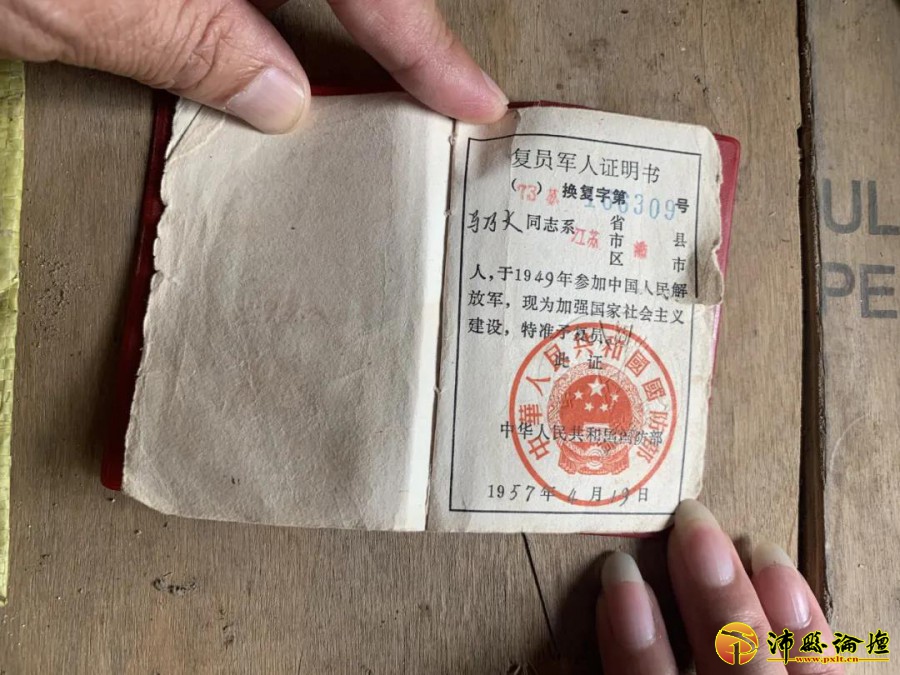 复员军人证明书
(73苏) 换复字第166309号
马乃义同志系江苏省市区沛县市
人，于1949年参加中国人民解
放军，现为加强国家社会主义
建设，特准予复员。
此证
中華人民共和國國防部
中华人民共和国国防部
1957年4月19日
UL
PE
沛縣論壇
www.pxlt.cn